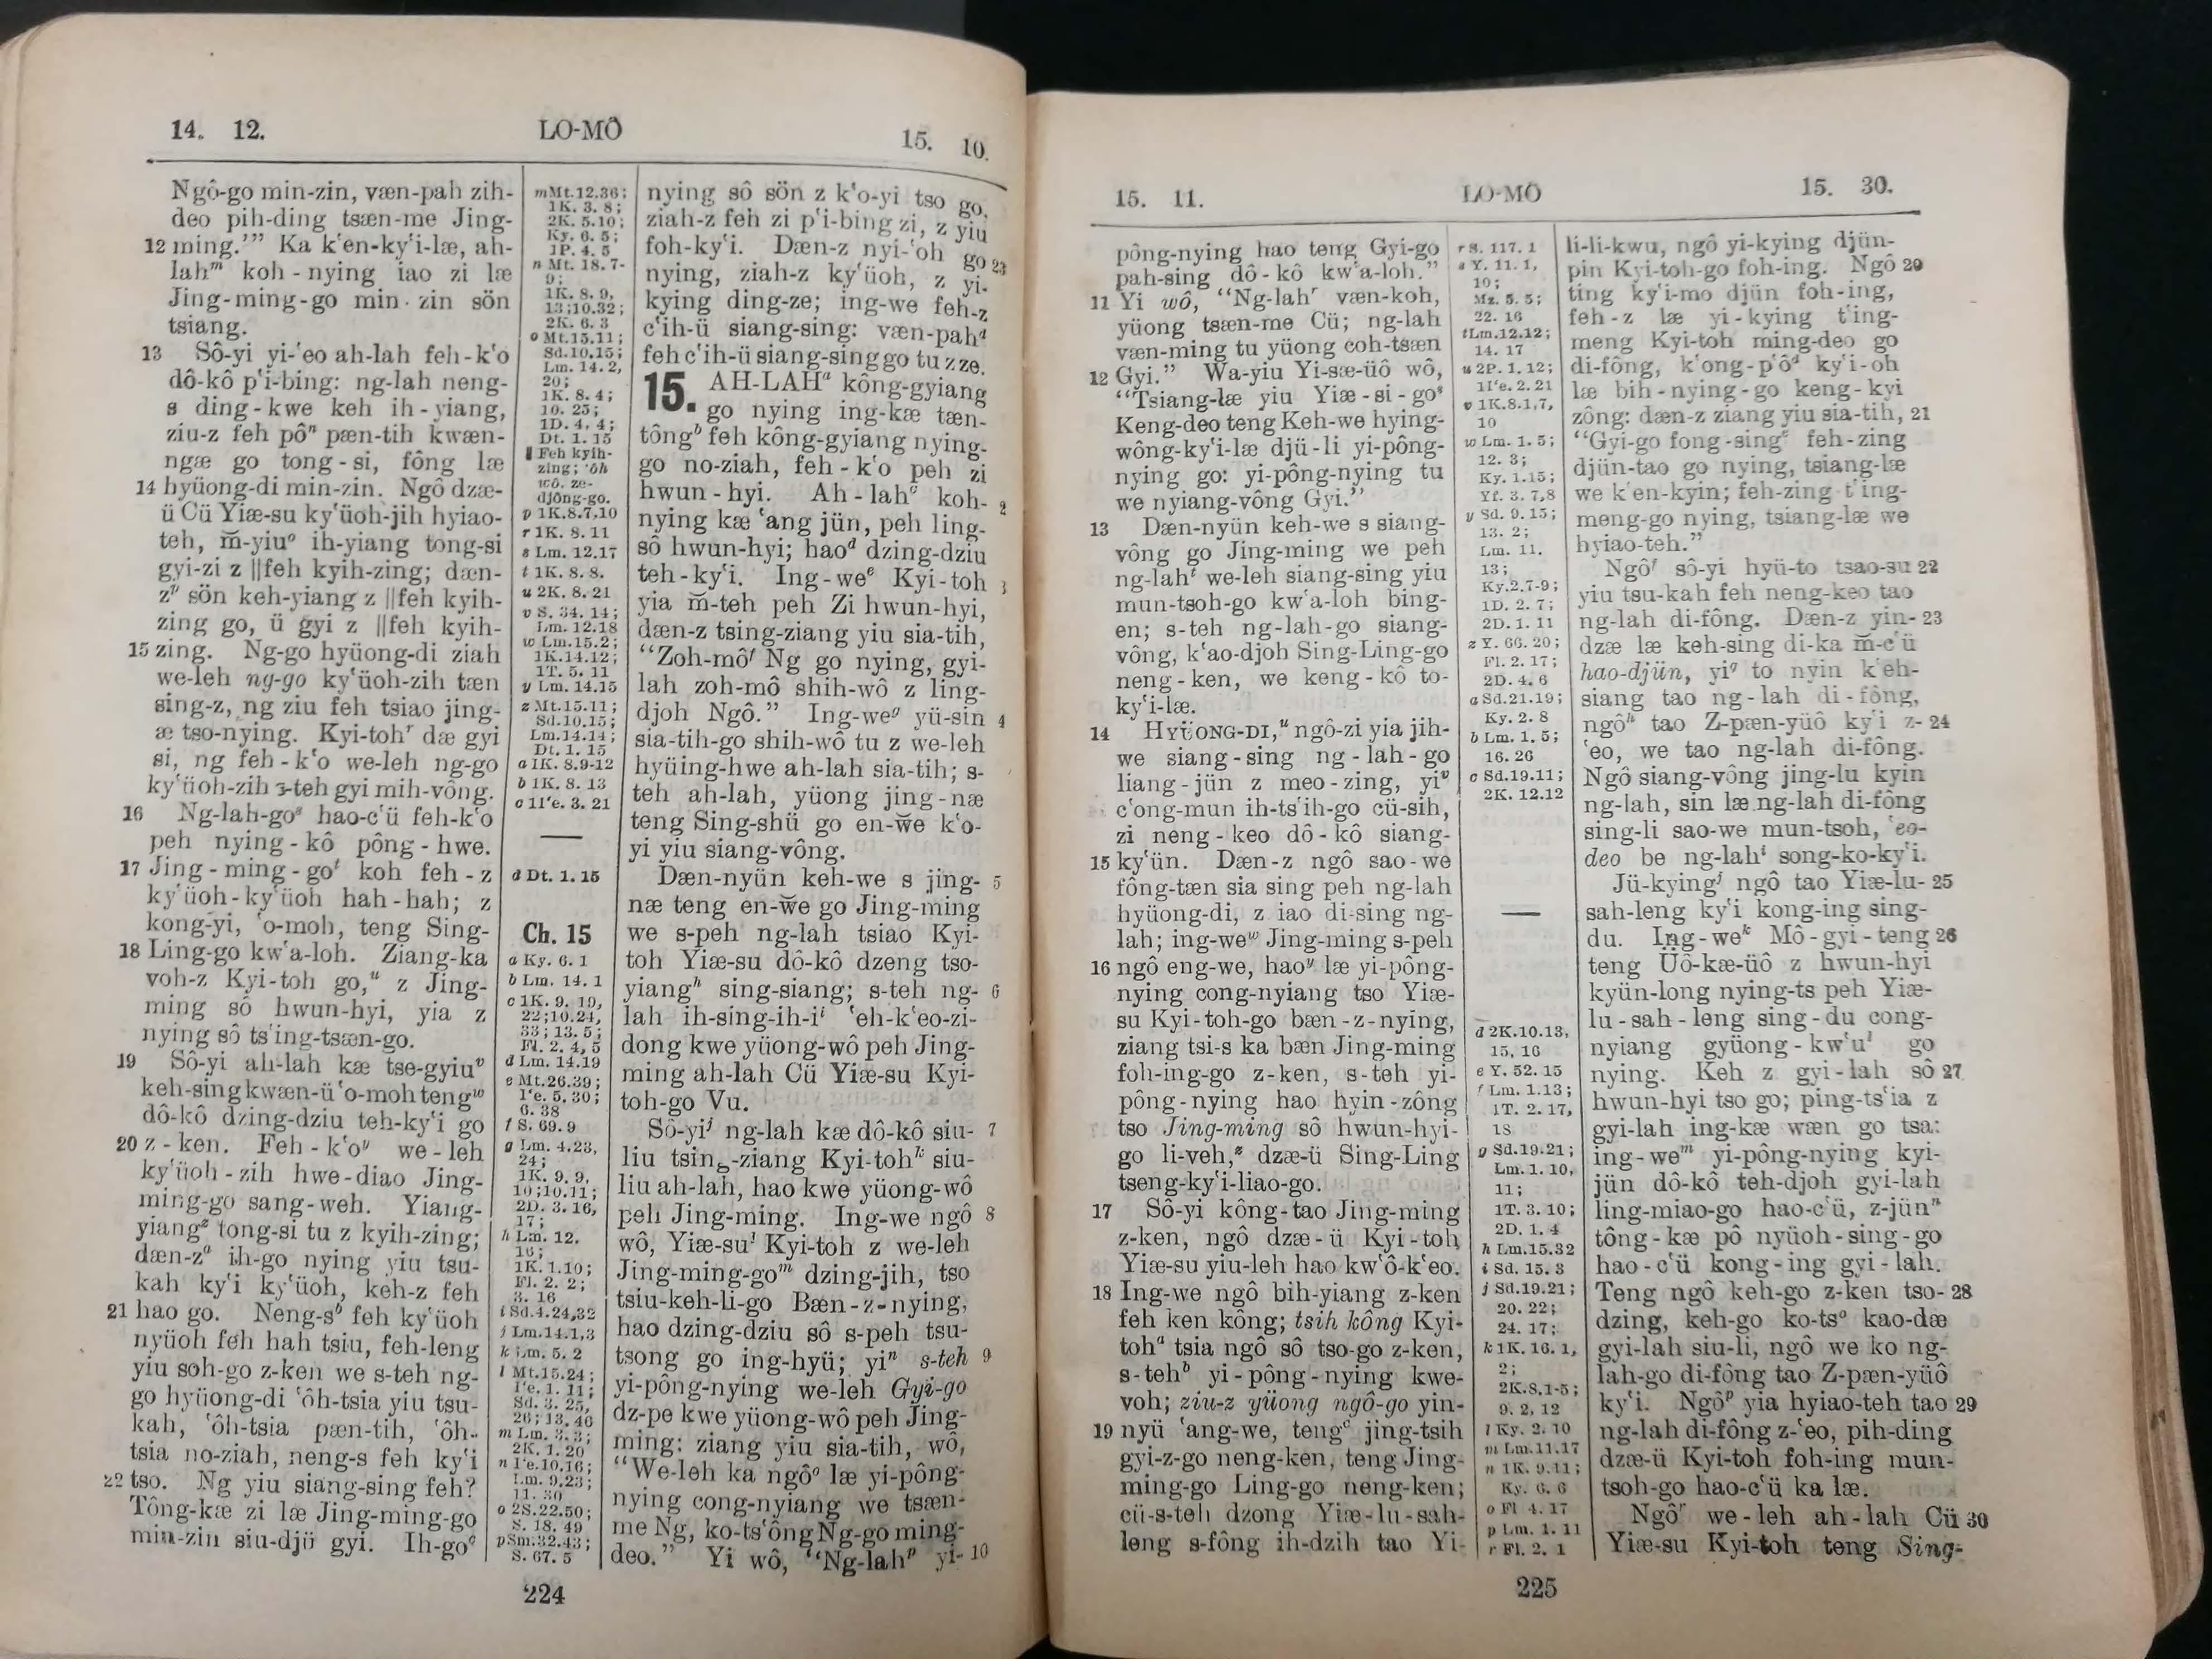 14. 12. LO-MÔ 15. 10.
Ngô-go min-zin, væn-pah zih-
deo pih-ding tsæn-me Jing-
12 ming.’” Ka k‘en-ky‘i-læ, ah-
lahᵐ koh-nying iao zi læ
Jing-ming-go min-zin sön
tsiang.
13 Sô-yi yi-‘eo ah-lah feh-k‘o
dô-kô p‘i-bing: ng-lah neng-
s ding-kwe keh ih-yiang,
ziu-z feh pôⁿ pæn-tih kwæn-
ngæ go tong-si, fông læ
14 hyüong-di min-zin. Ngô dzæ-
ü Cü Yiæ-su ky‘üoh-jih hyiao-
teh, m̆-yiuᵒ ih-yiang tong-si
gyi-zi z ||feh kyih-zing; dæn-
zᵖ sön keh-yiang z ||feh kyih-
zing go, ü gyi z ||feh kyih-
15 zing. Ng-go hyüong-di ziah
we-leh ng-go ky‘üoh-zih tæn
sing-z, ng ziu feh tsiao jing-
æ tso-nying. Kyi-tohʳ dæ gyi
si, ng feh-k‘o we-leh ng-go
ky‘üoh-zih s-teh gyi mih-vông.
16 Ng-lah-goˢ hao-c‘ü feh-k‘o
peh nying-kô pông-hwe.
17 Jing-ming-goᵗ koh feh-z
ky‘üoh-ky‘üoh hah-hah; z
kong-yi, ‘o-moh, teng Sing-
18 Ling-go kw‘a-loh. Ziang-ka
voh-z Kyi-toh go,ᵘ z Jing-
ming sô hwun-hyi, yia z
nying sô ts‘ing-tsæn-go.
19 Sô-yi ah-lah kæ tse-gyiuᵛ
keh-sing kwæn-ü ‘o-moh tengʷ
dô-kô dzing-dziu teh-ky‘i go
20 z-ken. Feh-k‘oʸ we-leh
ky‘üoh-zih hwe-diao Jing-
ming-go sang-weh. Yiang-
yiangᶻ tong-si tu z kyih-zing;
dæn-zᵃ ih-go nying yiu tsu-
kah ky‘i ky‘üoh, keh-z feh
21 hao go. Neng-sᵇ feh ky‘üoh
nyüoh feh hah tsiu, feh-leng
yiu soh-go z-ken we s-teh ng-
go hyüong-di ‘ôh-tsia yiu tsu-
kah, ‘ôh-tsia pæn-tih, ‘ôh-
tsia no-ziah, neng-s feh ky‘i
22 tso. Ng yiu siang-sing feh?
Tông-kæ zi læ Jing-ming-go
min-zin siu-djü gyi. Ih-goᶜ
m Mt.12.36;
1K. 3. 8;
2K. 5.10;
Ky. 6. 5;
1P. 4. 5
n Mt. 18. 7-
9;
1K. 8. 9,
13;10.32;
2K. 6. 3
o Mt.15.11;
Sd.10.15;
Lm. 14. 2,
20;
1K. 8. 4;
10. 25;
1D. 4. 4;
Dt. 1. 15
|| Feh kyih-
zing; ‘ôh
wô. ze-
djông-go.
p 1K.8.7,10
r 1K. 8. 11
s Lm. 12.17
t 1K. 8. 8.
u 2K. 8. 21
v S. 34. 14;
Lm. 12.18
w Lm.15.2;
1K.14.12;
1T. 5. 11
y Lm. 14.15
z Mt.15.11;
Sd.10.15;
Lm.14.14;
Dt. 1. 15
a 1K. 8.9-12
b 1K. 8. 13
c 1I‘e. 3. 21
d Dt. 1. 15
Ch. 15
a Ky. 6. 1
b Lm. 14. 1
c 1K. 9. 19,
22;10.24,
33; 13. 5;
Fl. 2. 4, 5
d Lm. 14.19
e Mt.26.39;
I‘e. 5. 30;
6. 38
f S. 69. 9
g Lm. 4.23,
24;
1K. 9. 9,
10;10.11;
2D. 3. 16,
17;
h Lm. 12.
16;
1K. 1.10;
Fl. 2. 2;
3. 16
i Sd.4.24,32
j Lm.14.1,3
k Lm. 5. 2
l Mt.15.24;
I‘e. 1. 11;
Sd. 3. 25,
26; 13. 46
m Lm. 3. 3;
2K. 1. 20
n I‘e.10.16;
Lm. 9.23;
11. 30
o 2S.22.50;
S. 18. 49
p Sm.32.43;
S. 67. 5
nying sô sön z k‘o-yi tso go,
ziah-z feh zi p‘i-bing zi, z yiu
foh-ky‘i. Dæn-z nyi-‘oh go 23
nying, ziah-z ky‘üoh, z yi-
kying ding-ze; ing-we feh-z
c‘ih-ü siang-sing: væn-pahᵈ
feh c‘ih-ü siang-sing go tu z ze.
15. AH-LAHᵃ kông-gyiang
go nying ing-kæ tæn-
tôngᵇ feh kông-gyiang nying-
go no-ziah, feh-k‘o peh zi
hwun-hyi. Ah-lahᶜ koh- 2
nying kæ ‘ang jün, peh ling-
sô hwun-hyi; haoᵈ dzing-dziu
teh-ky‘i. Ing-weᵉ Kyi-toh 3
yia m̆-teh peh Zi hwun-hyi,
dæn-z tsing-ziang yiu sia-tih,
“Zoh-môᶠ Ng go nying, gyi-
lah zoh-mô shih-wô z ling-
djoh Ngô.” Ing-weᵍ yü-sin 4
sia-tih-go shih-wô tu z we-leh
hyüing-hwe ah-lah sia-tih; s-
teh ah-lah, yüong jing-næ
teng Sing-shü go en-w̆e k‘o-
yi yiu siang-vông.
Dæn-nyün keh-we s jing- 5
næ teng en-w̆e go Jing-ming
we s-peh ng-lah tsiao Kyi-
toh Yiæ-su dô-kô dzeng tso-
yiangʰ sing-siang; s-teh ng- 6
lah ih-sing-ih-iⁱ ‘eh-k‘eo-zi-
dong kwe yüong-wô peh Jing-
ming ah-lah Cü Yiæ-su Kyi-
toh-go Vu.
Sô-yiʲ ng-lah kæ dô-kô siu- 7
liu tsing-ziang Kyi-tohᵏ siu-
liu ah-lah, hao kwe yüong-wô
peh Jing-ming. Ing-we ngô 8
wô, Yiæ-suˡ Kyi-toh z we-leh
Jing-ming-goᵐ dzing-jih, tso
tsiu-keh-li-go Bæn-z-nying,
hao dzing-dziu sô s-peh tsu-
tsong go ing-hyü; yiⁿ s-teh 9
yi-pông-nying we-leh Gyi-go
dz-pe kwe yüong-wô peh Jing-
ming: ziang yiu sia-tih, wô,
“We-leh ka ngôᵒ læ yi-pông-
nying cong-nyiang we tsæn-
me Ng, ko-ts‘ông Ng-go ming-
deo.” Yi wô, “Ng-lahᵖ yi- 10
224
15. 11. LO-MÔ 15. 30.
pông-nying hao teng Gyi-go
pah-sing dô-kô kw‘a-loh.”
11 Yi wô, “Ng-lahʳ væn-koh,
yüong tsæn-me Cü; ng-lah
væn-ming tu yüong coh-tsæn
12 Gyi.” Wa-yiu Yi-sæ-üô wô,
“Tsiang-læ yiu Yiæ-si-goˢ
Keng-deo teng Keh-we hying-
wông-ky‘i-læ djü-li yi-pông-
nying go: yi-pông-nying tu
we nyiang-vông Gyi.”
13 Dæn-nyün keh-we s siang-
vông go Jing-ming we peh
ng-lahᵗ we-leh siang-sing yiu
mun-tsoh-go kw‘a-loh bing-
en; s-teh ng-lah-go siang-
vông, k‘ao-djoh Sing-Ling-go
neng-ken, we keng-kô to-
ky‘i-læ.
14 HYÜONG-DI,ᵘ ngô-zi yia jih-
we siang-sing ng-lah-go
liang-jün z meo-zing, yiᵛ
c‘ong-mun ih-ts‘ih-go cü-sih,
zi neng-keo dô-kô siang-
15 ky‘ün. Dæn-z ngô sao-we
fông-tæn sia sing peh ng-lah
hyüong-di, z iao di-sing ng-
lah; ing-weʷ Jing-ming s-peh
16 ngô eng-we, haoʸ læ yi-pông-
nying cong-nyiang tso Yiæ-
su Kyi-toh-go bæn-z-nying,
ziang tsi-s ka bæn Jing-ming
foh-ing-go z-ken, s-teh yi-
pông-nying hao hyin-zông
tso Jing-ming sô hwun-hyi-
go li-veh,ᶻ dzæ-ü Sing-Ling
tseng-ky‘i-liao-go.
17 Sô-yi kông-tao Jing-ming
z-ken, ngô dzæ-ü Kyi-toh
Yiæ-su yiu-leh hao kw‘ô-k‘eo.
18 Ing-we ngô bih-yiang z-ken
feh ken kông; tsih kông Kyi-
tohᵃ tsia ngô sô tso-go z-ken,
s-tehᵇ yi-pông-nying kwe-
voh; ziu-z yüong ngô-go yin-
19 nyü ‘ang-we, tengᶜ jing-tsih
gyi-z-go neng-ken, teng Jing-
ming-go Ling-go neng-ken;
cü-s-teh dzong Yiæ-lu-sah-
leng s-fông ih-dzih tao Yi-
r S. 117. 1
s Y. 11. 1,
10;
Mz. 5. 5;
22. 16
t Lm.12.12;
14. 17
u 2P. 1. 12;
1I‘e. 2. 21
v 1K.8.1,7,
10
w Lm. 1. 5;
12. 3;
Ky. 1.15;
Yf. 3. 7,8
y Sd. 9. 15;
13. 2;
Lm. 11.
13;
Ky.2.7-9;
1D. 2. 7;
2D. 1. 11
z Y. 66. 20;
Fl. 2. 17;
2D. 4. 6
a Sd.21.19;
Ky. 2. 8
b Lm. 1. 5;
16. 26
c Sd.19.11;
2K. 12.12
d 2K.10.13,
15, 16
e Y. 52. 15
f Lm. 1.13;
1T. 2. 17,
18
g Sd.19.21;
Lm. 1. 10,
11;
1T. 3. 10;
2D. 1. 4
h Lm.15.32
i Sd. 15. 3
j Sd.19.21;
20. 22;
24. 17;
k 1K. 16. 1,
2;
2K.8.1-5;
9. 2, 12
l Ky. 2. 10
m Lm.11.17
n 1K. 9.11;
Ky. 6. 6
o Fl 4. 17
p Lm. 1. 11
r Fl. 2. 1
li-li-kwu, ngô yi-kying djün-
pin Kyi-toh-go foh-ing. Ngô 20
ting ky‘i-mo djün foh-ing,
feh-z læ yi-kying t‘ing-
meng Kyi-toh ming-deo go
di-fông, k‘ong-p‘ôᵈ ky‘i-oh
læ bih-nying-go keng-kyi
zông: dæn-z ziang yiu sia-tih, 21
“Gyi-go fong-singᵉ feh-zing
djün-tao go nying, tsiang-læ
we k‘en-kyin; feh-zing t‘ing-
meng-go nying, tsiang-læ we
hyiao-teh.”
Ngôᶠ sô-yi hyü-to tsao-su 22
yiu tsu-kah feh neng-keo tao
ng-lah di-fông. Dæn-z yin- 23
dzæ læ keh-sing di-ka m̆-c‘ü
hao-djün, yiᵍ to nyin k‘eh-
siang tao ng-lah di-fông,
ngôʰ tao Z-pæn-yüô ky‘i z- 24
‘eo, we tao ng-lah di-fông.
Ngô siang-vông jing-lu kyin
ng-lah, sin læ ng-lah di-fông
sing-li sao-we mun-tsoh, ‘eo-
deo be ng-lahⁱ song-ko-ky‘i.
Jü-kyingʲ ngô tao Yiæ-lu- 25
sah-leng ky‘i kong-ing sing-
du. Ing-weᵏ Mô-gyi-teng 26
teng Üô-kæ-üô z hwun-hyi
kyün-long nying-ts peh Yiæ-
lu-sah-leng sing-du cong-
nyiang gyüong-kw‘uˡ go
nying. Keh z gyi-lah sô 27
hwun-hyi tso go; ping-ts‘ia z
gyi-lah ing-kæ wæn go tsa:
ing-weᵐ yi-pông-nying kyi-
jün dô-kô teh-djoh gyi-lah
ling-miao-go hao-c‘ü, z-jünⁿ
tông-kæ pô nyüoh-sing-go
hao-c‘ü kong-ing gyi-lah.
Teng ngô keh-go z-ken tso- 28
dzing, keh-go ko-tsᵒ kao-dæ
gyi-lah siu-li, ngô we ko ng-
lah-go di-fông tao Z-pæn-yüô
ky‘i. Ngôᵖ yia hyiao-teh tao 29
ng-lah di-fông z-‘eo, pih-ding
dzæ-ü Kyi-toh foh-ing mun-
tsoh-go hao-c‘ü ka læ.
Ngôʳ we-leh ah-lah Cü 30
Yiæ-su Kyi-toh teng Sing-
225